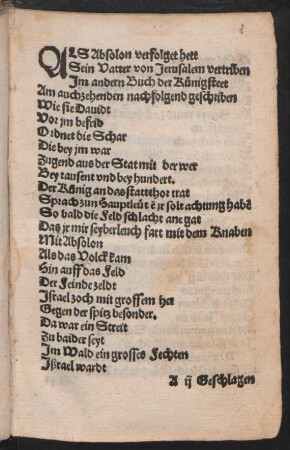 8
ALS Absolon verfolget hett
Sein Vatter von Jerusalem vertriben
Im andern Buch der Künigsteet
Am auchzehenden nachfolgend geschriben
Wie sie Dauidt
Vor jm bescid
Ordnet die Schar
Die bey jm war
Zugend aus der Stat mit der wer
Bey tausent vnd bey hundert.
Der Künig an das stattthor trat
Sprach zun Hauptleüt ẽ jr solt achtung habẽ
So bald die Feld schlacht ane gat
Das jr mir seyberleuch fart mit dem Knaben
Mit Absolon
Als das Volck kam
Hin auff das Feld
Der Feinde zeldt
Israel zoch mit grossem her
Gegen der spitz besonder.
Da war ein Streit
Zu baider seyt
Im Wald ein grosses Fechten
Ißrael wardt
A ij Geschlagen